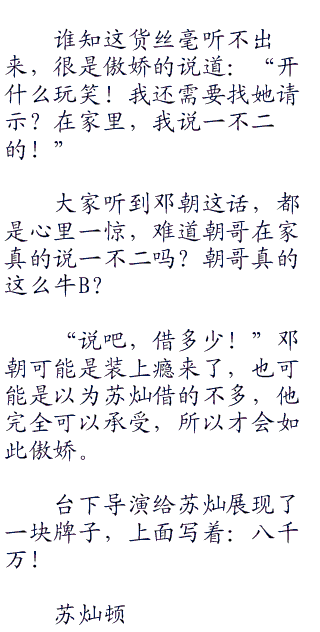 谁知这货丝毫听不出
来，很是傲娇的说道：“开
什么玩笑！我还需要找她请
示？在家里，我说一不二
的！”
大家听到邓朝这话，都
是心里一惊，难道朝哥在家
真的说一不二吗？朝哥真的
这么牛B？
“说吧，借多少！”邓
朝可能是装上瘾来了，也可
能是以为苏灿借的不多，他
完全可以承受，所以才会如
此傲娇。
台下导演给苏灿展现了
一块牌子，上面写着：八千
万！
苏灿顿